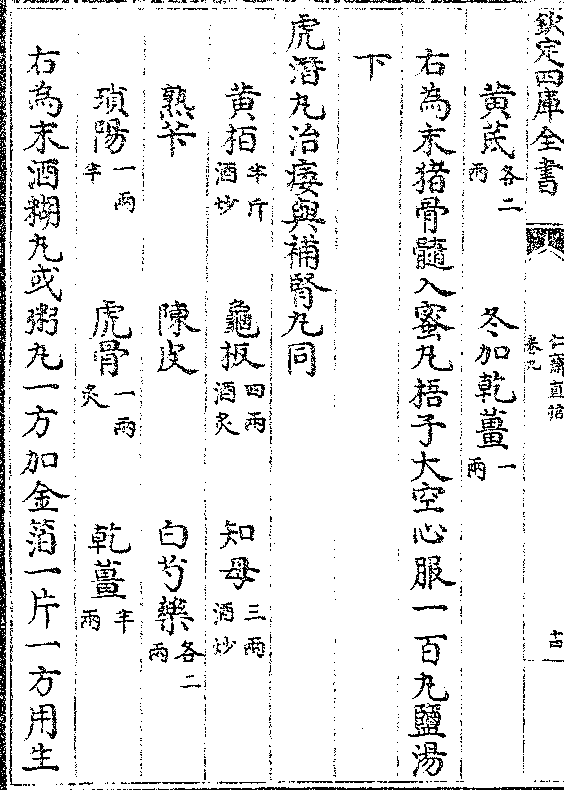 欽定四庫全書
仁齋直指
卷九
十四
黃芪各二兩 冬加乾薑一兩
右為末猪骨髓入蜜丸梧子大空心服一百丸鹽湯
下
虎潛丸治痿與補腎丸同
黃栢半斤酒炒 龜板四兩酒炙 知母三兩酒炒
熟苄 陳皮 白芍藥各二兩
瑣陽一兩半 虎骨一兩炙 乾薑半兩
右為末酒糊丸或粥丸一方加金箔一片一方用生